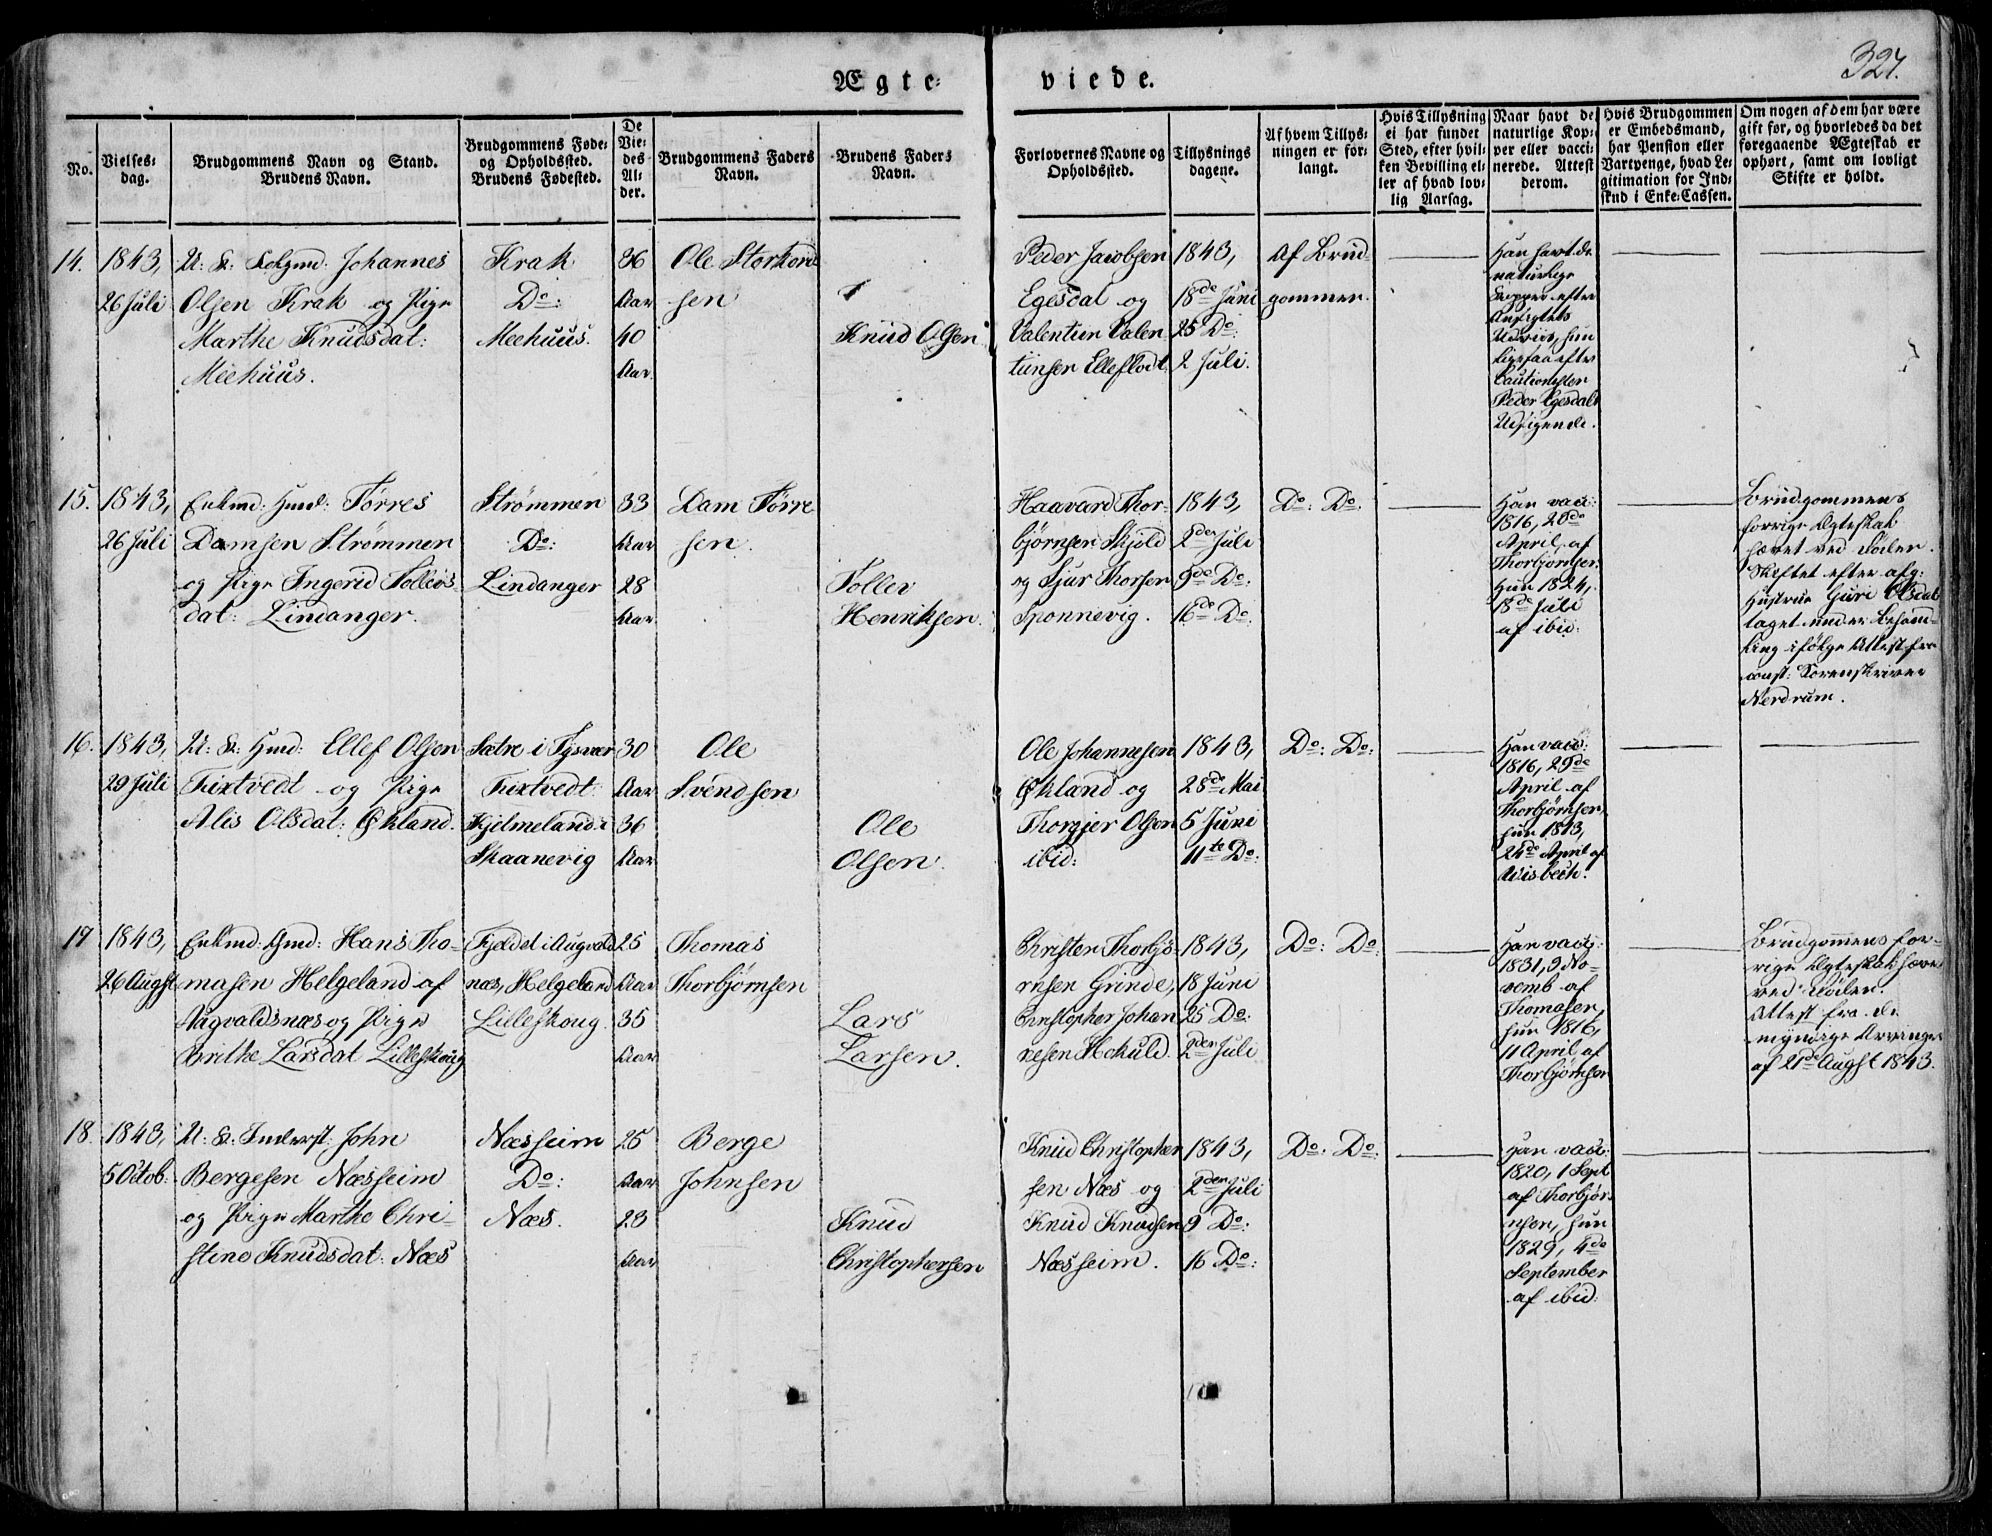 327.
Ægte-
viede.
No.
Vielses-
dag.
Brudgommens Navn og Stand.
Brudens Navn.
Brudgommens Føde-
og Opholdssted.
Brudens Fødested.
De
Vie-
des
Al-
der.
Brudgommens Faders
Navn.
Brudens Faders
Navn.
Forlovernes Navne og
Opholdssted.
Tillysnings
dagene.
Af hvem Tillys-
ningen er for-
langt.
Hvis Tillysning
ei har fundet
Sted, efter hvil-
ken Bevilling el-
ler af hvad lov-
lig Aarsag.
Naar havt de
naturlige Kop-
per eller vacci-
nerede. Attest
derom.
Hvis Brudgommen
er Embedsmand,
har Pension eller
Vartpenge, hvad Le-
gitimation for Ind-
skud i Enke-Cassen.
Om nogen af dem har være
gift før, og hvorledes da det
foregaaende Ægteskab er
ophørt, samt om lovligt
Skifte er holdt.
14.
1843,
26 Juli
U: K: Johannes
Olsen Krak og Pige
Marthe Knudsdat:
Meehuus.
Krak
Do:
Meehuus.
36
Aar
40
Aar.
Ole Storkord
sen
Knud Olsen
Peder Jacobsen
Egesdal og
Valentin Valen
tinsen Elleflodt.
1843,
18de Juni
25 Do:
2 Juli.
Af Brud
gommen.
Han havt de
naturlige
Kopper efter
Ansigtets
Udvise, hun
ligesaa efter
Cautionisten
Peder Egesdals
Udsigende.
15.
1843,
26 Juli
Enkmd: Huusmd: Tørres
Damsen Strømmen
og Pige Ingerid Tollevs
dat: Lindanger.
Strømmen
Do:
Lindanger
33
Aar
28
Aar
Dam Tørre
sen.
Tollev
Henriksen.
Haavard Thor-
bjørnsen Skjold
og Sjur Thorsen
Sponnevig.
1843,
2den Juli
9de Do:
16de Do:
Do: Do:
Han vacc:
1816, 20de
April, af
Thorbjørnsen.
Hun 1824,
18de Juli
af ibid:
Brudgommens
forrige Ægteskab
hævet ved Døden.
Skiftet efter afg:
Hustrue Guri Olsdat
taget under Behand-
ling ifølge Attest fra
const: Sorenskriver
Nerdrum.
16.
1843,
29 Juli
U: K: Huusmd: Ellef Olsen
Tuxtvedt og Pige
Alis Olsdat: Økland.
Sætre i Tysvær
Tuxtvedt
Hjelmeland i
Skaanevig
30
Aar
36
Aar
Ole
Svendsen
Ole
Olsen.
Ole Johannesen
Økland og
Thorgjer Olsen
ibid:
1843,
28de Mai
5 Juni
11te Do:
Do: Do:
Han vacc:
1816, 29de
April af
Thorbjørnsen,
hun 1813,
24de April af
17
1843,
26 Augst
Enkmd: Gmd: Hans Tho-
masen Helgeland af
Augvaldsnæs og Pige
Brithe Larsdat Lilleskoug
Fjeldet i Augvalds
næs, Helgeland
Lilleskoug.
25
Aar
35
Aar
Thomas
Thorbjørnsen
Lars
Larsen.
Christen Thorbjø-
rnsen Grinde,
Christopher Johan
nesen Hekuld.
1843,
18 Juni
25 Do:
2den Juli
Do: Do
Han vacc:
1831, 9 No-
vemb af
Thomasen,
hun 1816,
11 April, af
Thorbjørnsen
Brudgommens for-
rige Ægteskab hæve
ved Døden.
Attest fra de
myndige Arvinger
af 21de Augst 1843.
18.
1843,
5 Octob:
U: K: Inderst: John
Bergesen Næsheim
og Pige Marthe Chri-
stine Knudsdat: Næs
Næsheim
Do:
Næs.
25
Aar
23
Aar
Berge
Johnsen
Knud
Christophersen
Knud Christopher
sen Næs og
Knud Knudsen
Næsheim.
1843,
2den Juli
9 Do:
16 Do:
Do: Do:
Han vacc:
1820, 1 Sept
af Thorbjør
nsen, hun
1829, 4de
September
af ibid: